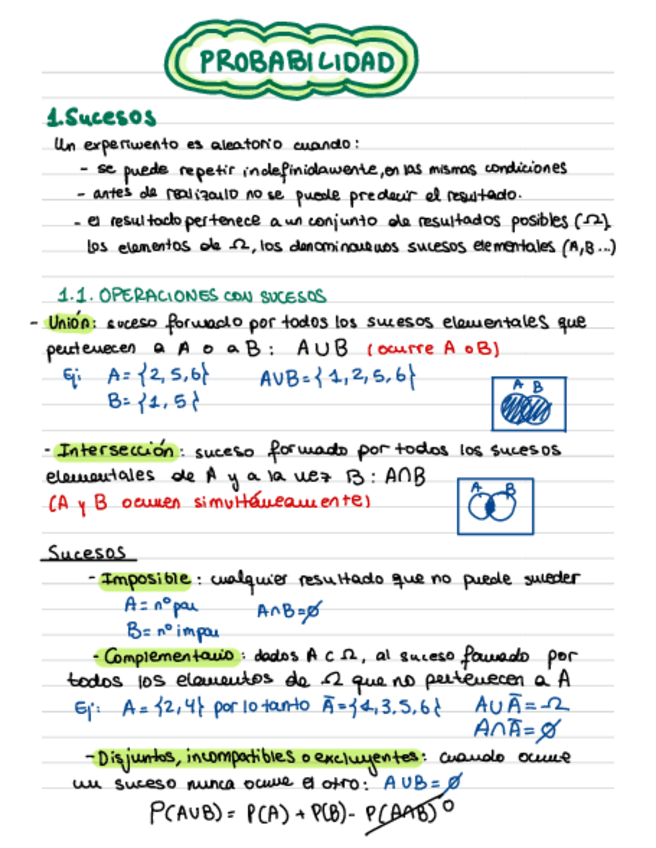 PROBABILIDAD
1. Sucesos
Un experimento es aleatorio cuando:
- se puede repetir indefinidamente, en las mismas condiciones
- antes de realizarlo no se puede predecir el resultado.
- el resultado pertenece a un conjunto de resultados posibles (Ω),
los elementos de Ω, los denominamos sucesos elementales (A,B...)
1.1. OPERACIONES CON SUCESOS
- Unión: suceso formado por todos los sucesos elementales que
pertenecen a A o a B: A∪B (ocurre A o B)
Ej: A = {2,5,6} A∪B = {1,2,5,6}
B = {1,5}
A B
- Intersección: suceso formado por todos los sucesos
elementales de A y a la vez B: A∩B
(A y B ocurren simultáneamente)
A B
Sucesos
- Imposible: cualquier resultado que no puede suceder
A = nº par A∩B = ∅
B = nº impar
- Complementario: dados A ⊂ Ω, al suceso formado por
todos los elementos de Ω que no pertenecen a A
Ej: A = {2,4} por lo tanto Ā = {1,3,5,6} A∪Ā = Ω
A∩Ā = ∅
- Disjuntos, incompatibles o excluyentes: cuando ocurre
un suceso nunca ocurre el otro: A∪B = ∅
P(A∪B) = P(A) + P(B) - P(A∩B) 0